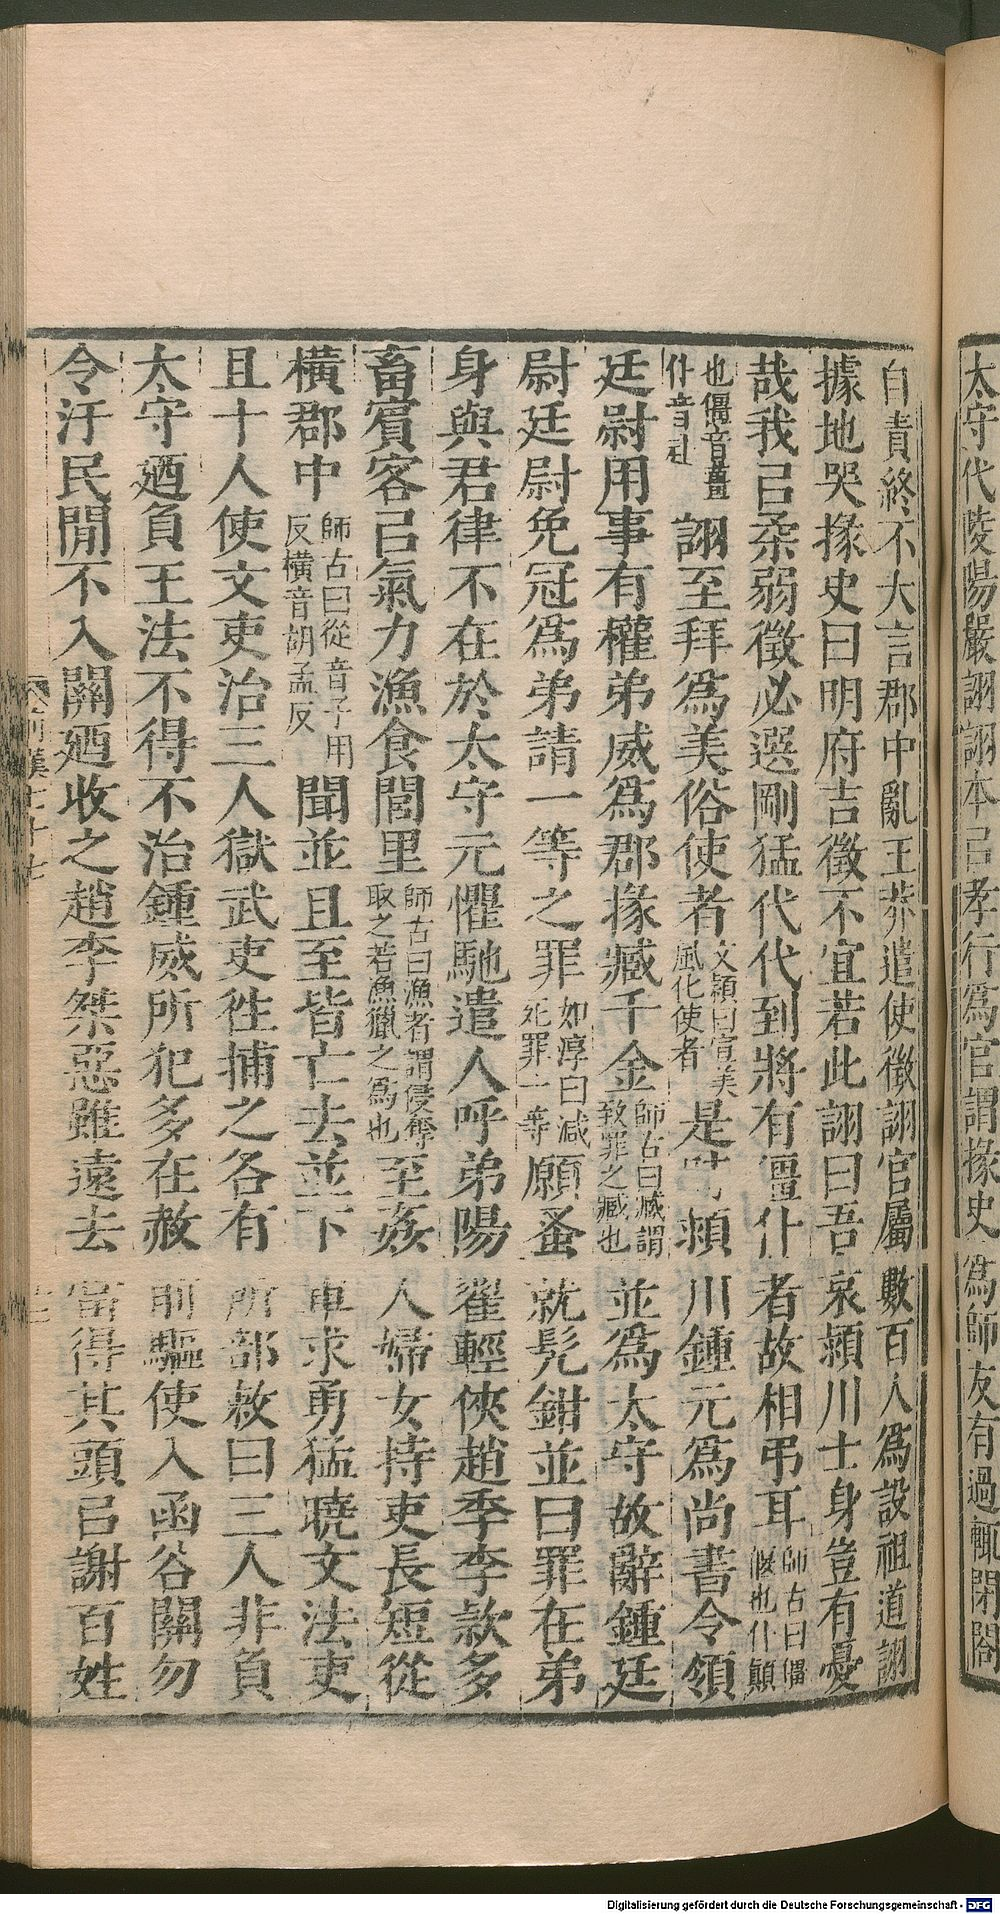 太守代陵陽嚴詡詡本㠯孝行爲官謂掾史爲師友有過輒閉閤
自責終不大言郡中亂王莽遣使徵詡官屬數百人爲設祖道詡
據地哭掾史曰明府吉徵不宜若此詡曰吾哀潁川士身豈有憂
哉我㠯柔弱徵必選剛猛代代到將有僵仆者故相弔耳師古曰僵
偃也仆顚
也僵音薑
仆音赴
詡至拜爲美俗使者文穎曰宣美
風化使者
是時潁川鍾元爲尚書令領
廷尉用事有權弟威爲郡掾臧千金師古曰臧謂
致罪之臧也
並爲太守故辭鍾廷
尉廷尉免冠爲弟請一等之罪如淳曰減
死罪一等
願蚤就髡鉗並曰罪在弟
身與君律不在於太守元懼馳遣人呼弟陽翟輕俠趙季李款多
畜賓客㠯氣力漁食閭里師古曰漁者謂侵奪
取之若漁獵之爲也
至姦人婦女持吏長短從
橫郡中師古曰從音子用
反橫音胡孟反
聞並且至皆亡去並下車求勇猛曉文法吏
且十人使文吏治三人獄武吏往捕之各有所部敕曰三人非負
太守廼負王法不得不治鍾威所犯多在赦前驅使入函谷關勿
令汙民閒不入關廼收之趙李桀惡雖遠去當得其頭㠯謝百姓
前漢七十七
Digitalisierung gefördert durch die Deutsche Forschungsgemeinschaft - DFG